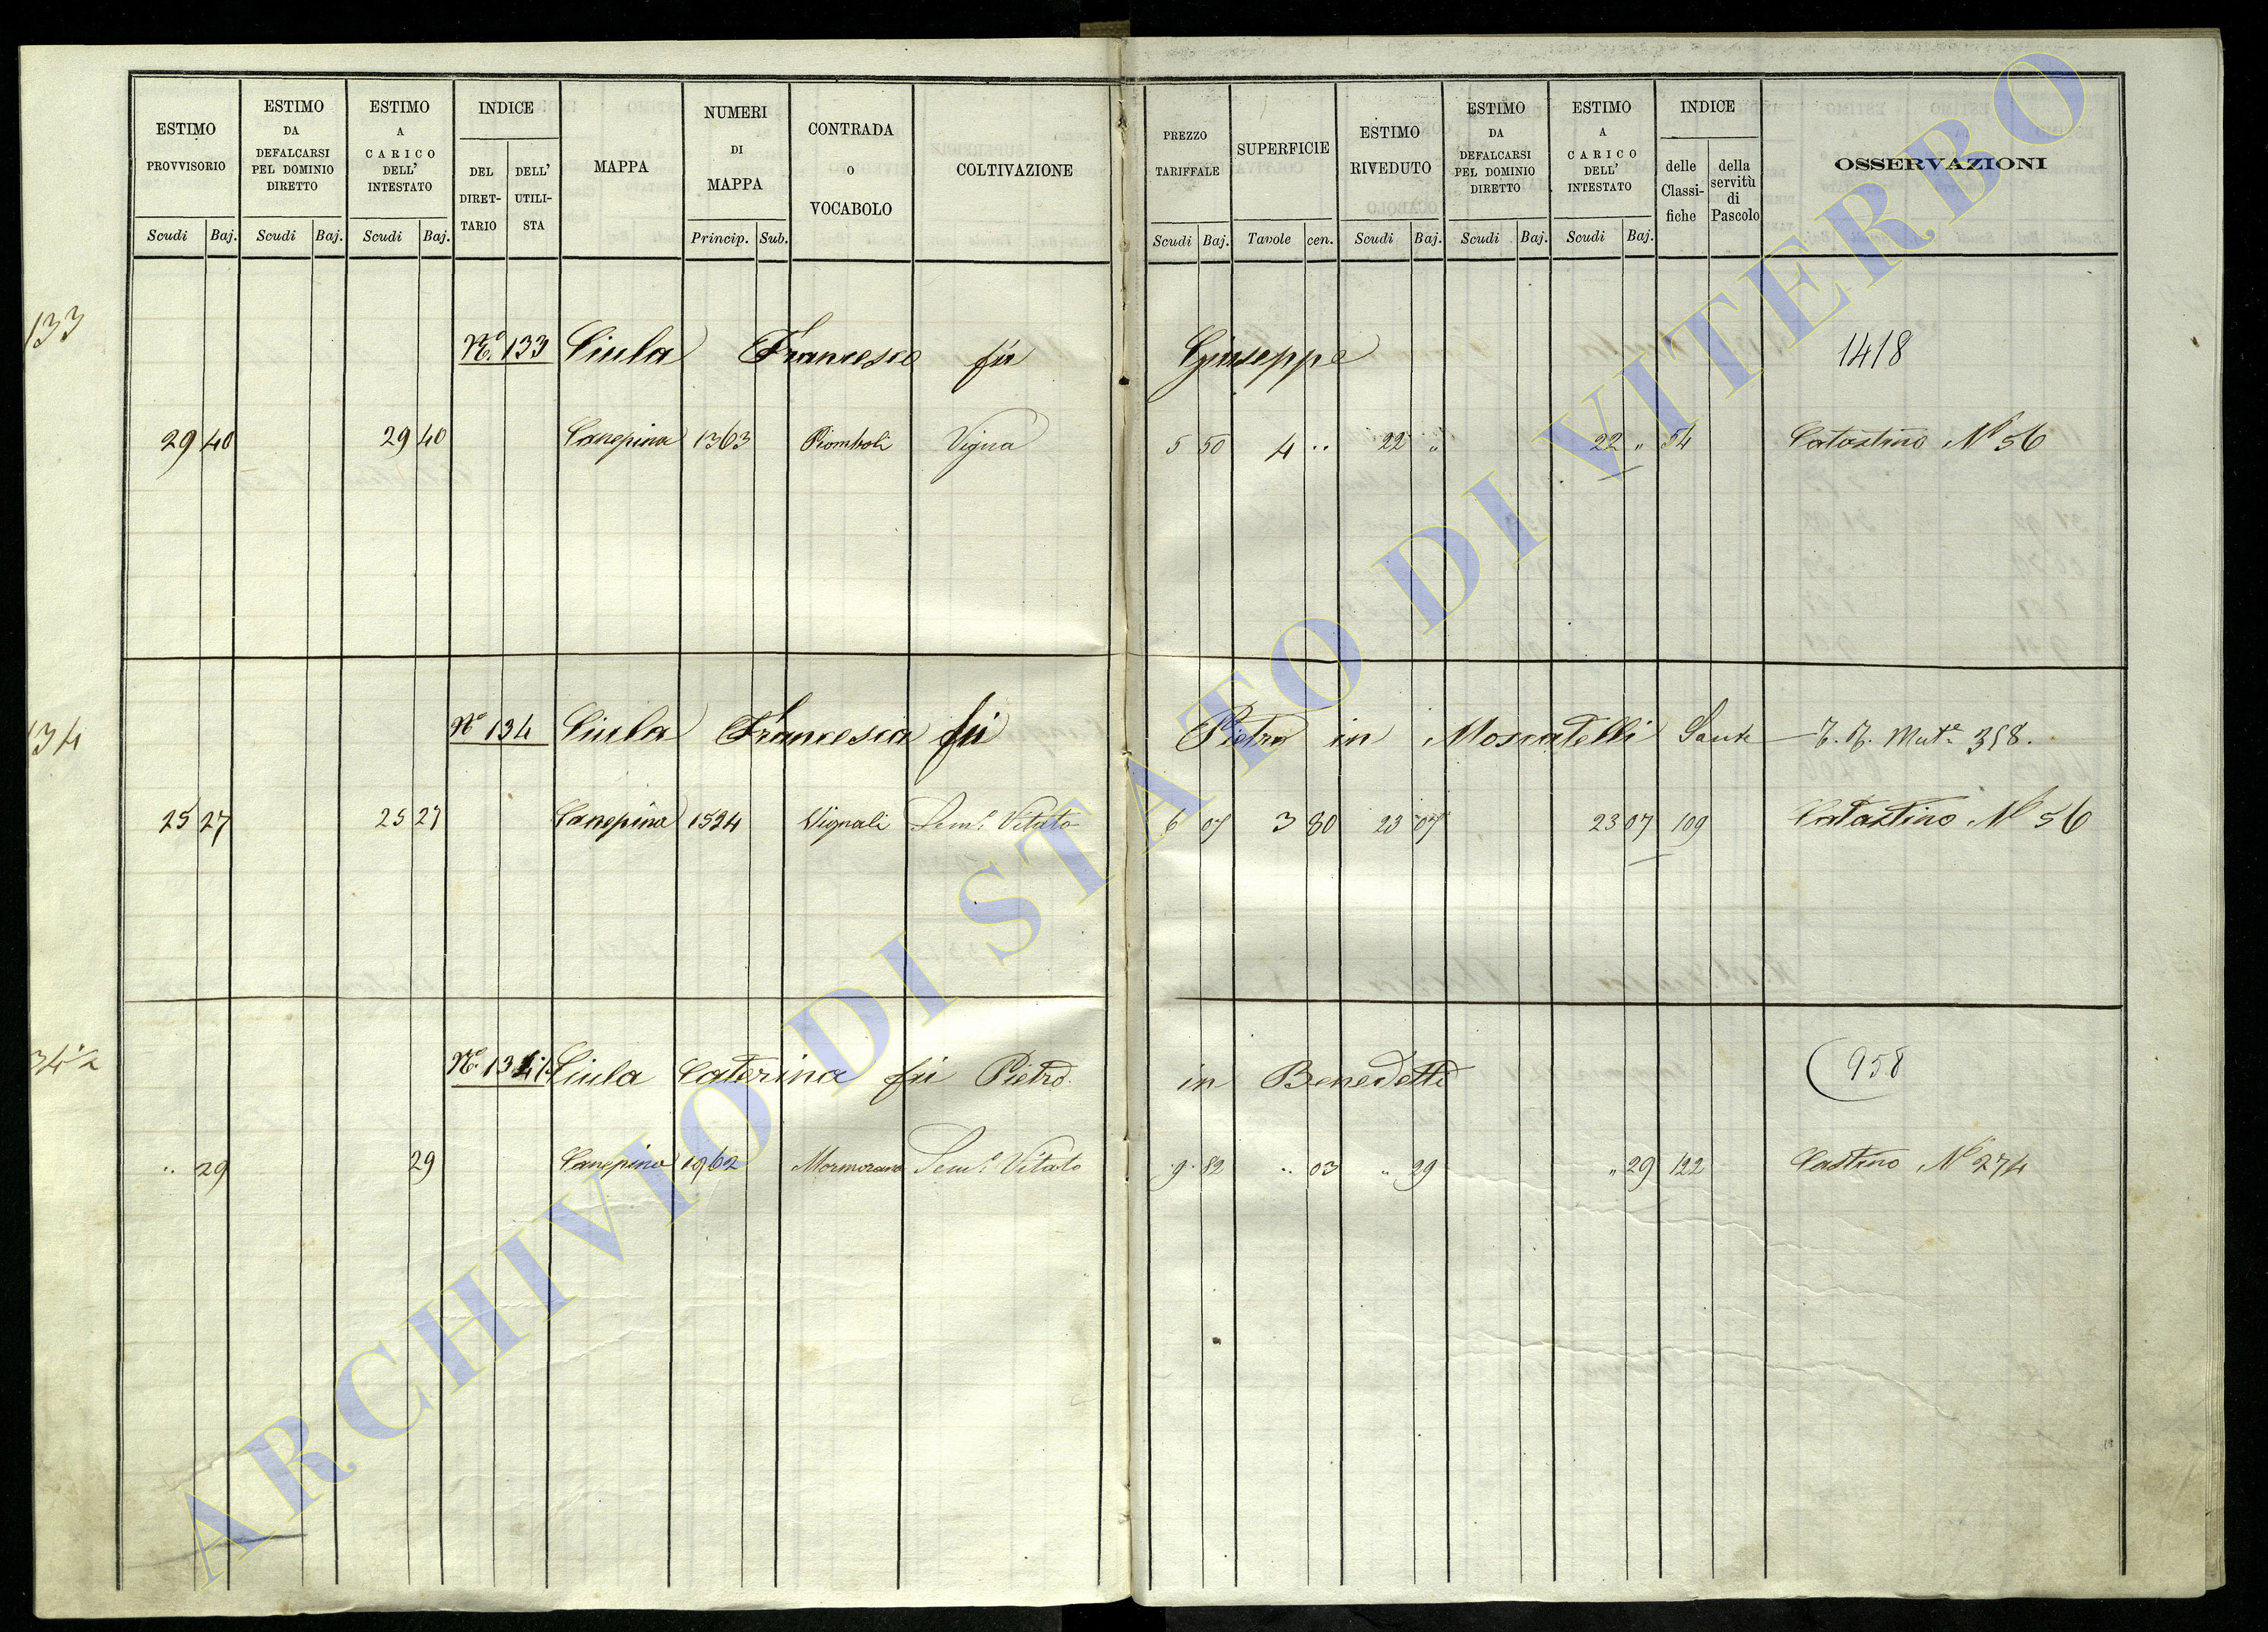 ESTIMO PROVVISORIO
ESTIMO DA DEFALCARSI PEL DOMINIO DIRETTO
ESTIMO A CARICO DELL' INTESTATO
INDICE
DEL DIRET-TARIO
DELL' UTILI-STA
MAPPA
NUMERI DI MAPPA
CONTRADA O VOCABOLO
COLTIVAZIONE
PREZZO TARIFFALE
SUPERFICIE
ESTIMO RIVEDUTO
ESTIMO DA DEFALCARSI PEL DOMINIO DIRETTO
ESTIMO A CARICO DELL' INTESTATO
INDICE
delle Classi-fiche
della servitù di Pascolo
OSSERVAZIONI
Scudi Baj. Scudi Baj. Scudi Baj. Princip. Sub. Scudi Baj. Tavole cen. Scudi Baj. Scudi Baj. Scudi Baj.
133 No. 133 Ciula Francesco fu Giuseppe 1418
29 40 29 40 Canepina 1363 Piomboli Vigna 5 50 4 .. 22 " 22 " 54 Catastino No 56
134 No 134 Ciula Francesca fu Pietro in Moscatelli Sante
25 27 25 27 Canepina 1524 Vignali Sem.o Vitato 6 07 3 80 23 07 23 07 109 Catastino No 56
34 1/2 No. 134 1/2 Ciula Caterina fu Pietro in Benedetti 958
.. 29 29 Canepina 1962 Mormorano Sem.o Vitato 9 82 .. 03 " 29 " 29 122 Castino No 274
ARCHIVIO DI STATO DI VITERBO